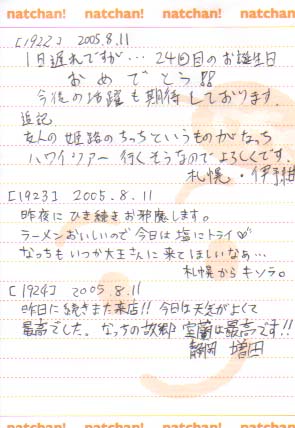 natchan! natchan! natchan! natchan!
[1922] 2005.8.11
1日遅れですが… 24回目のお誕生日
おめでとう!!
今後の活躍も期待しております。
追記
友人の姫路のちっちというものがなっち
ハワイツアー行くそうなのでよろしくです。
札幌・伊
[1923] 2005.8.11
昨夜にひき続きお邪魔します。
ラーメンおいしいので今日は塩にトライ♡
なっちもいつか大王さんに来てほしいなぁ…
札幌からキソラ。
[1924] 2005.8.11
昨日に続きまた来店!! 今日は天気がよくて
最高でした。なっちの故郷 室蘭は最高です!!
静岡 増田
natchan! natchan! natchan! natchan!